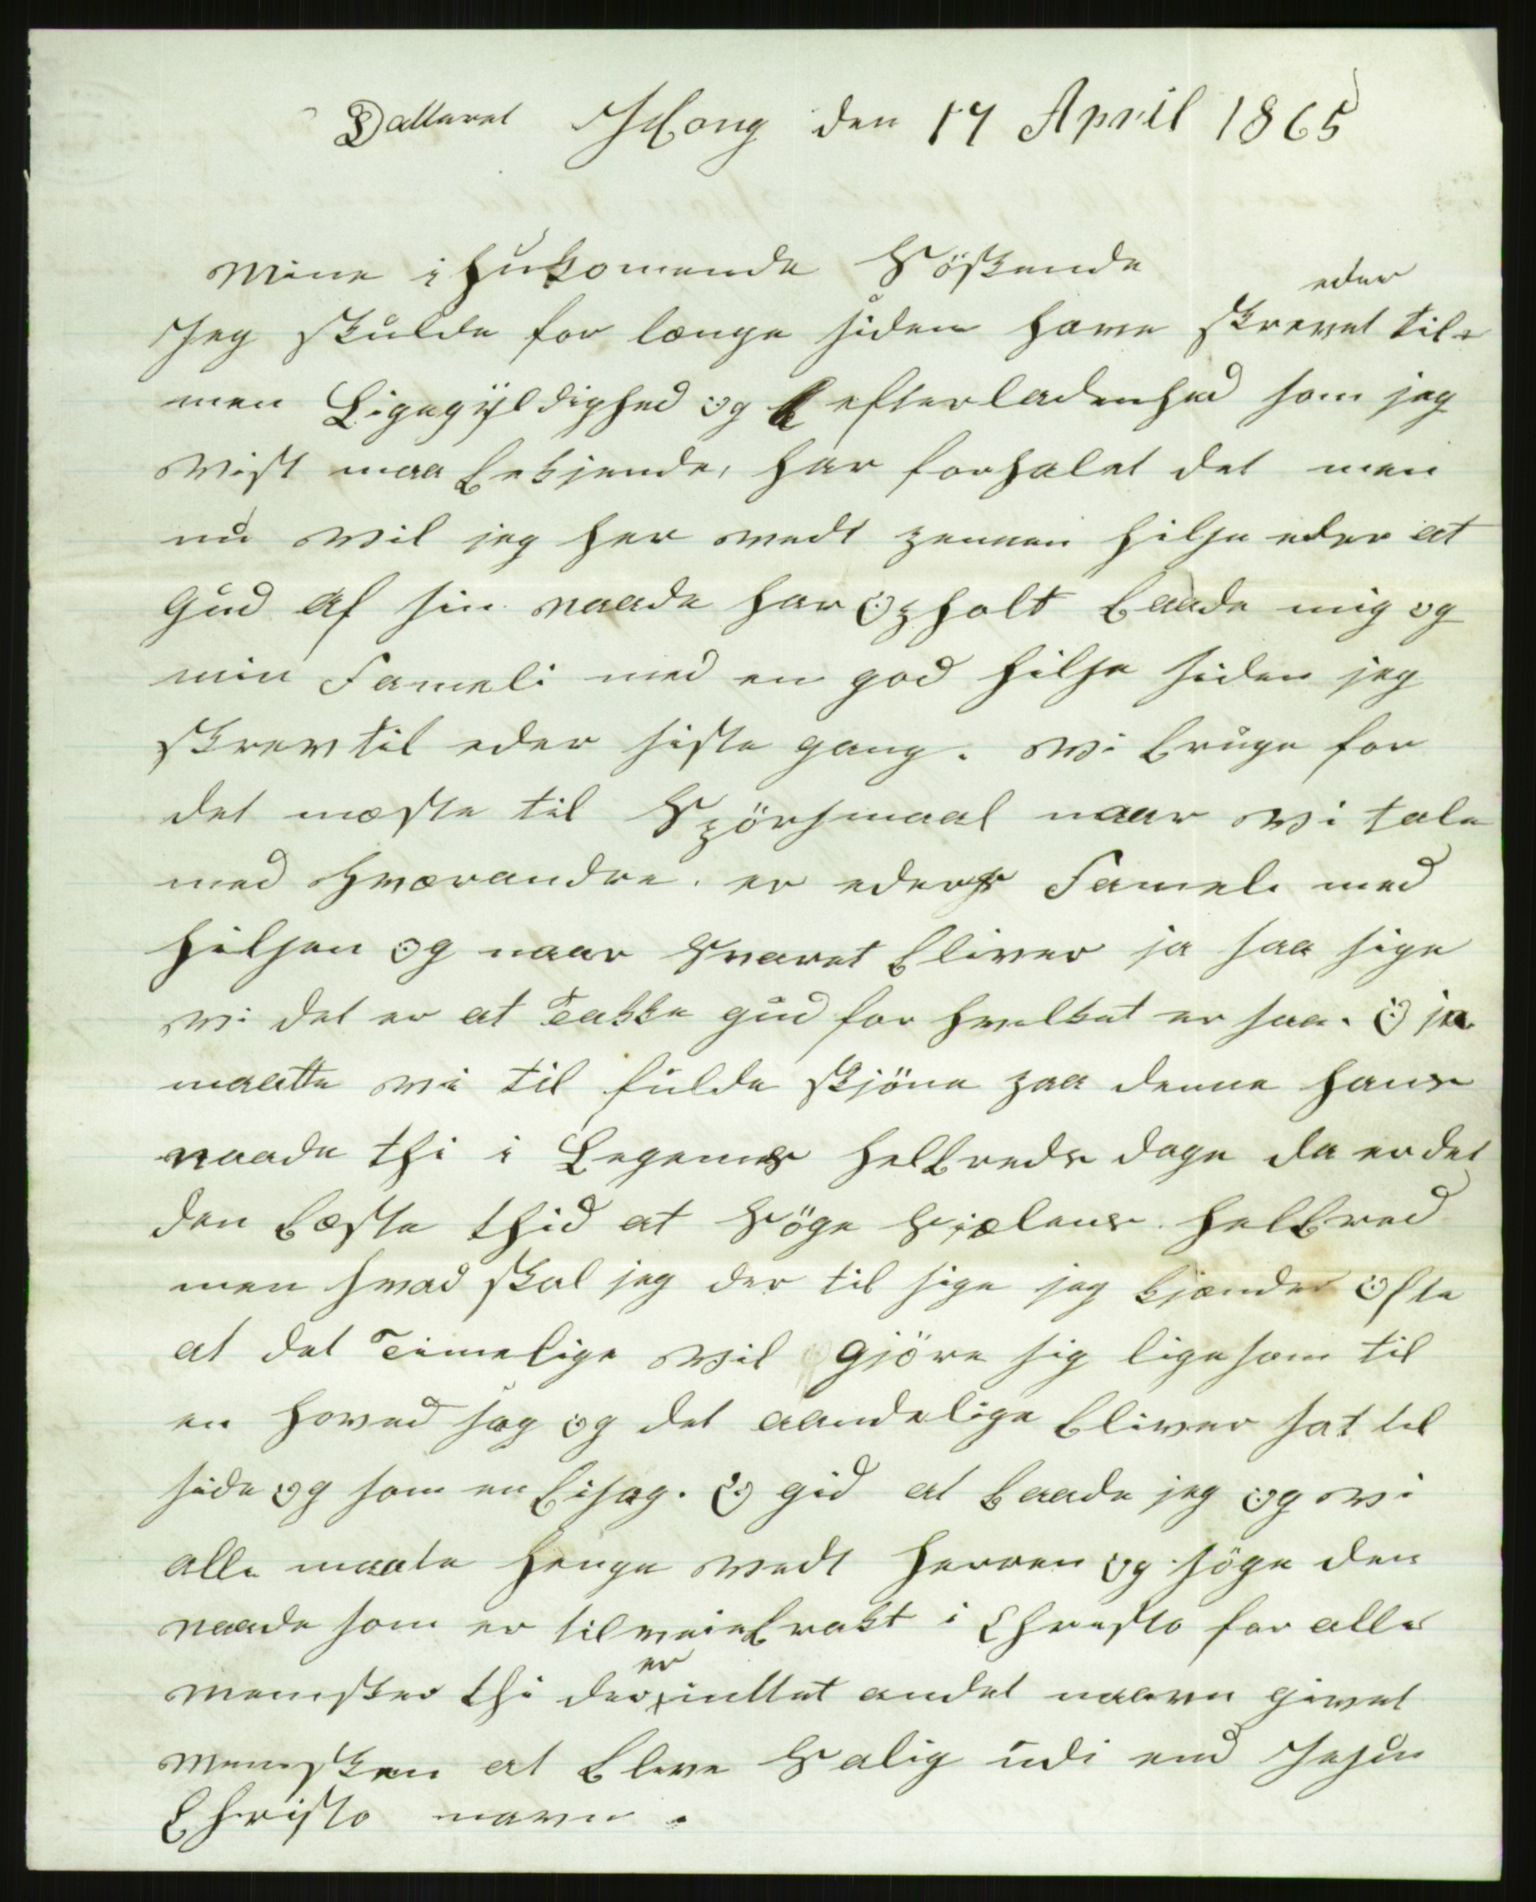 Datteret Houg den 17 April 1865
Mine ihukomende Söskende
eder
Jeg skulde for længe siden have skrevet til
men Ligegyldighed og efterladenhed som jeg
vist maa bekjende, har forhalet det men
nu vil jeg her vedt pennen hilse eder at
Gud af sin naade har Opholt baade mig og
min Fameli med en god hilse siden jeg
skrev til eder siste gang. vi bruge for
det mæste til Spörsmaal naar vi tale
med hverandre. er eders Fameli med
hilsen og naar Svaret bliver ja saa sige
vi det er at Takke gud for hvelket er saa. O ja
maatte vi til fulde skjöne paa denne hans
naade thi i Legemes helbreds dage da er det
den bæste thid at Söge Sjælens helbred
men hvad skal jeg der til sige jeg kjænder Ofte
at det Timelige vil gjöre sig ligesom til
en hoved sag og det aandelige bliver sat til
side og som en bisag. O gid at baade jeg og vi
alle maate henge vedt Herren og söge den
naade som er tilveiebrakt i Christo for alle
er
Mensker thi der inttet andet naavn givet
Mensken at bleve Salig udi end Jesu
Christo navn.